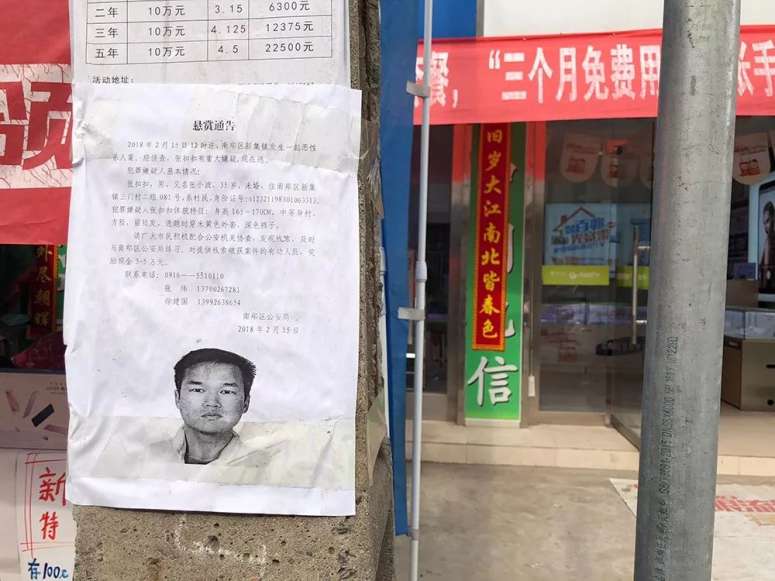 二年 10万元 3.15 6300元
三年 10万元 4.125 12375元
五年 10万元 4.5 22500元
活动地址:
悬赏通告
2018年2月15日12时许，南郑区新集镇发生一起恶性
杀人案，经侦查，张扣扣有重大嫌疑，现在逃。
犯罪嫌疑人基本情况:
张扣扣，男，又名张小波，35岁，未婚，住南郑区新集
镇三门村二组081号，系村民，身份证号:
犯罪嫌疑人张扣扣体貌特征: 身高165-170CM，中等身材，
方脸，留短发，逃跑时穿米黄色外套，深色裤子。
请广大市民积极配合公安机关侦查，发现线索，及时
与南郑区公安局联系，对提供线索破获案件的有功人员，奖
励现金3-5万元。
联系电话: 0916---5510110
张 伟 13700267281
徐建国 13992638654
南郑区公安局
2018年2月15日
餐，“三个月免费用
张手
旧岁大江南北皆春色
信
新
特
存100元